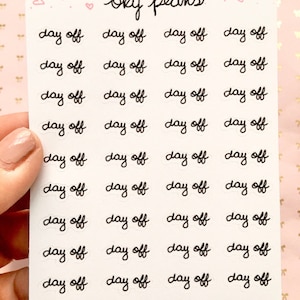 day off day off day off day off
day off day off day off day off
day off day off day off day off
day off day off day off day off
day off day off day off day off
day off day off day off day off
day off day off day off day off
day off day off day off day off
day off day off day off day off